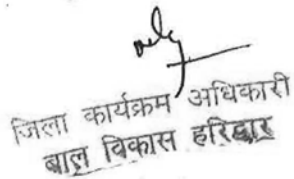 जिला कार्यक्रम अधिकारी
बाल विकास हरिद्वार